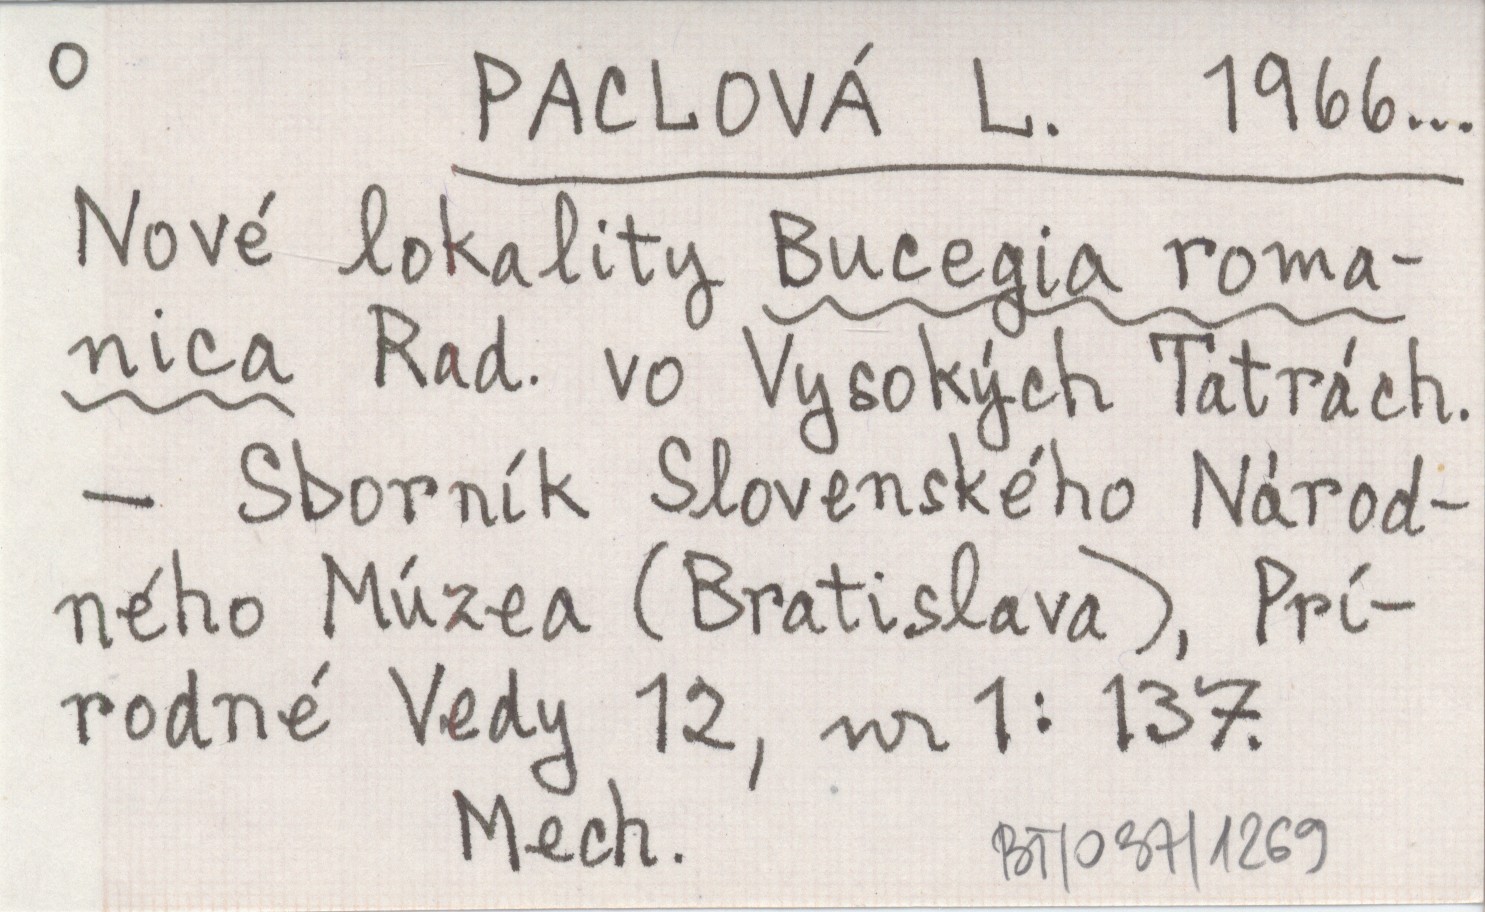 O PACLOVÁ L. 1966...
Nové lokality Bucegia roma-
nica Rad. vo Vysokých Tatrách.
— Sborník Slovenského Národ-
ného Múzea (Bratislava), Prí-
rodné Vedy 12, nr 1: 137.
Mech. BT/087/1269